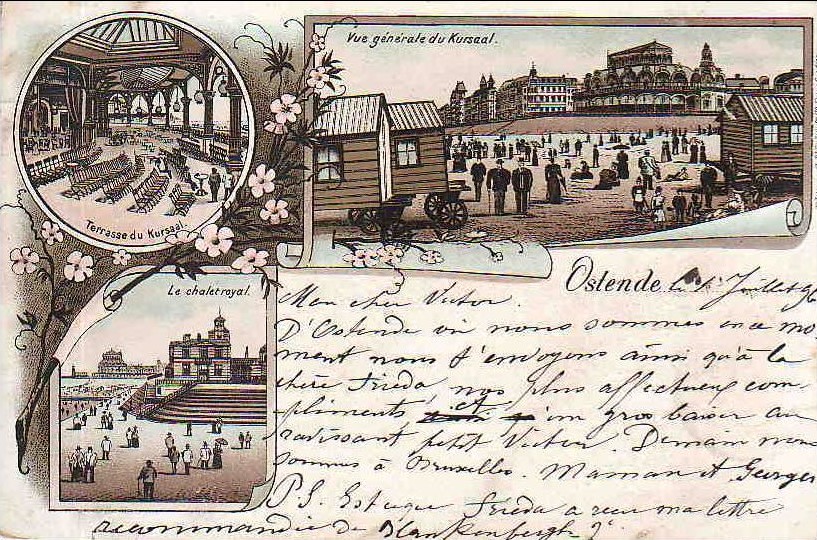 Vue générale du Kursaal.
Terrasse du Kursaal.
Le chalet royal.
Ostende le 1r Juillet 96
Mon cher Victor.
D'Ostende où nous sommes en ce mo-
ment nous t'envoyons ainsi qu'à la
chère Frieda nos plus affectueux com-
pliments et un gros baiser au
ravissant petit Victor. Demain nous
sommes à Bruxelles. Maman et Georges
P.S. Est ce que Frieda a reçu ma lettre
recommandée de Blankenberghe ?